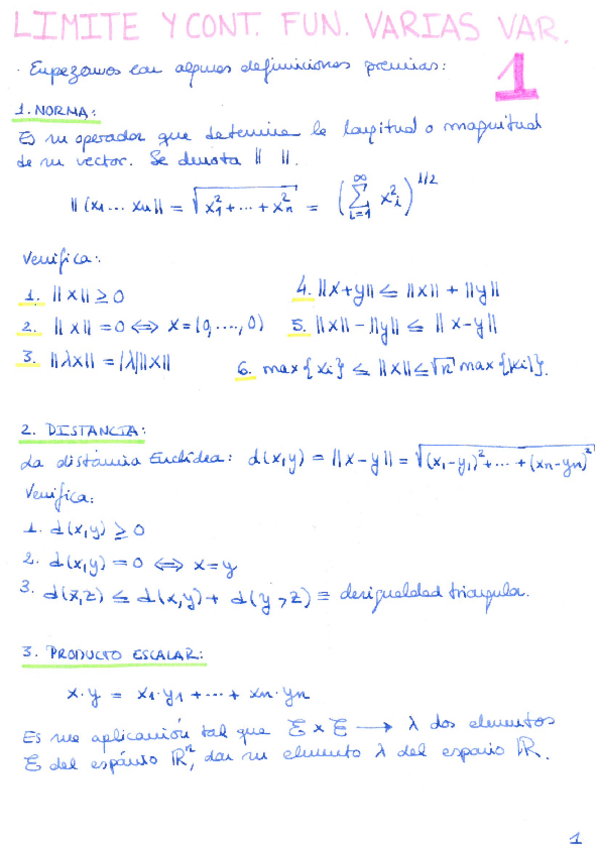 LIMITE Y CONT. FUN. VARIAS VAR.
· Empezamos con algunas definiciones previas: 1
1. NORMA:
Es un operador que determina la longitud o magnitud
de un vector. Se denota || ||.
||(x₁ ... xₙ|| = √(x₁² + ... + xₙ²) = (∑_{i=1}^{∞} x_i²)^{1/2}
Verifica:
1. ||x|| ≥ 0
2. ||x|| = 0 ⟺ x = (0, ..., 0)
3. ||λx|| = |λ| ||x||
4. ||x+y|| ≤ ||x|| + ||y||
5. ||x|| - ||y|| ≤ ||x-y||
6. max{xi} ≤ ||x|| ≤ √n max{|xi|}.
2. DISTANCIA:
La distancia Euclídea: d(x,y) = ||x-y|| = √((x₁-y₁)² + ... + (xn-yn)²)
Verifica:
1. d(x,y) ≥ 0
2. d(x,y) = 0 ⟺ x=y
3. d(x,z) ≤ d(x,y) + d(y,z) ≡ desigualdad triangular.
3. PRODUCTO ESCALAR:
x·y = x₁·y₁ + ... + xn·yn
Es una aplicación tal que E × E → λ dos elementos
E del espacio ℝⁿ, dan un elemento λ del espacio ℝ.
1